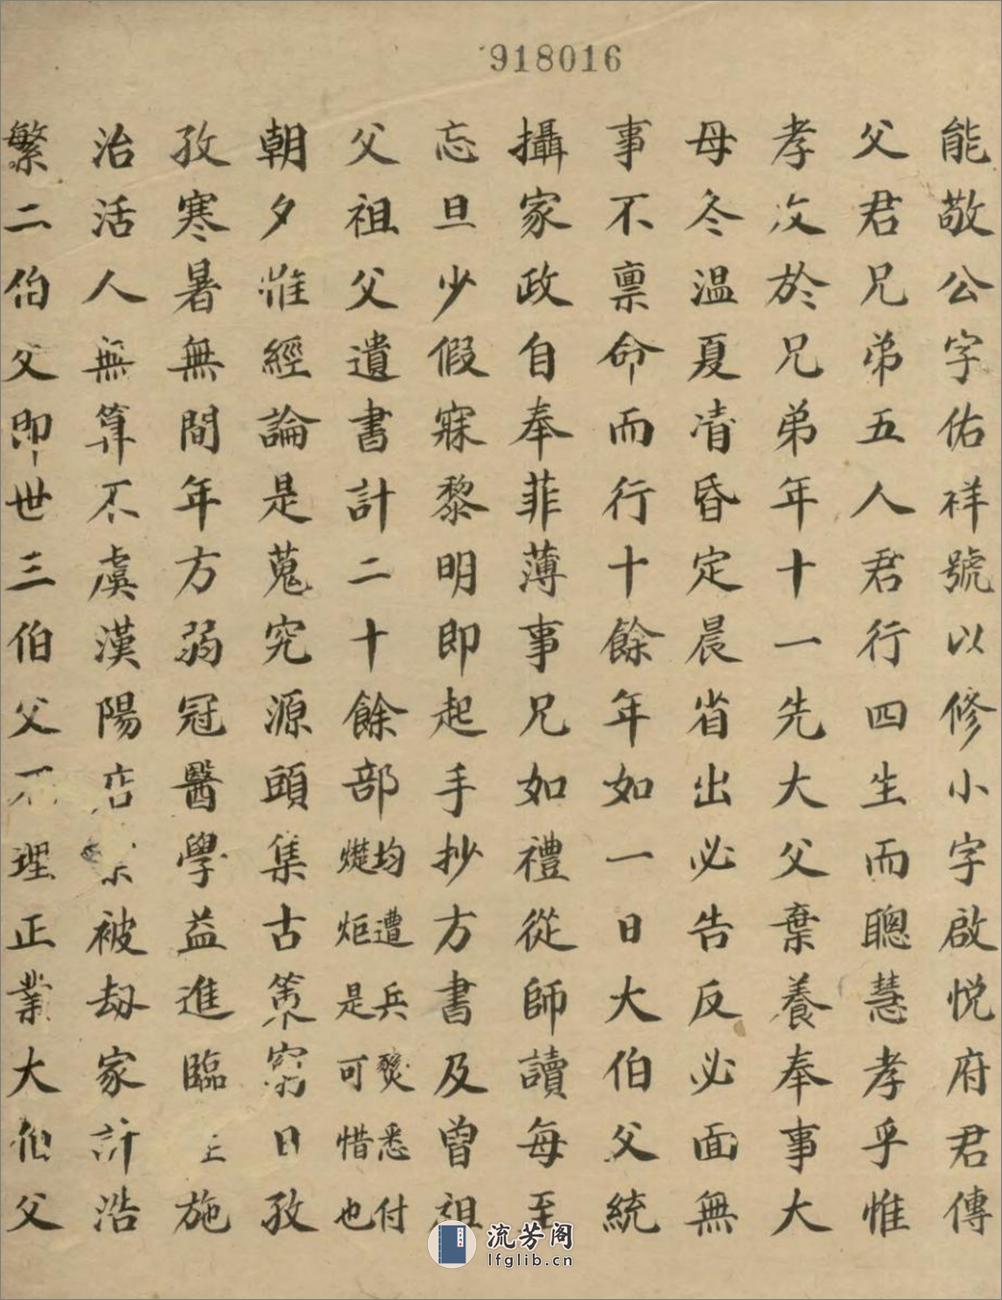 918016
能敬公字佑祥號以修小字啟悅府君傳
父君兄弟五人君行四生而聰慧孝乎惟
孝友於兄弟年十一先大父棄養奉事大
母冬温夏凊昏定晨省出必告反必面無
事不禀命而行十餘年如一日大伯父統
攝家政自奉菲薄事兄如禮從師讀每至
忘旦少假寐黎明即起手抄方書及曾祖
父祖父遺書計二十餘部均遭兵燹悉付㷼炬是可惜也
朝夕惟經論是蒐究源頭集古籌窮日孜
孜寒暑無間年方弱冠醫學益進臨施
治活人無算不虞漢陽店被劫家計浩
繁二伯父即世三伯父不理正業大伯父
流芳阁
lfglib.cn